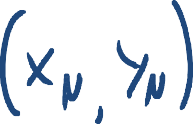 (x_N, y_N)